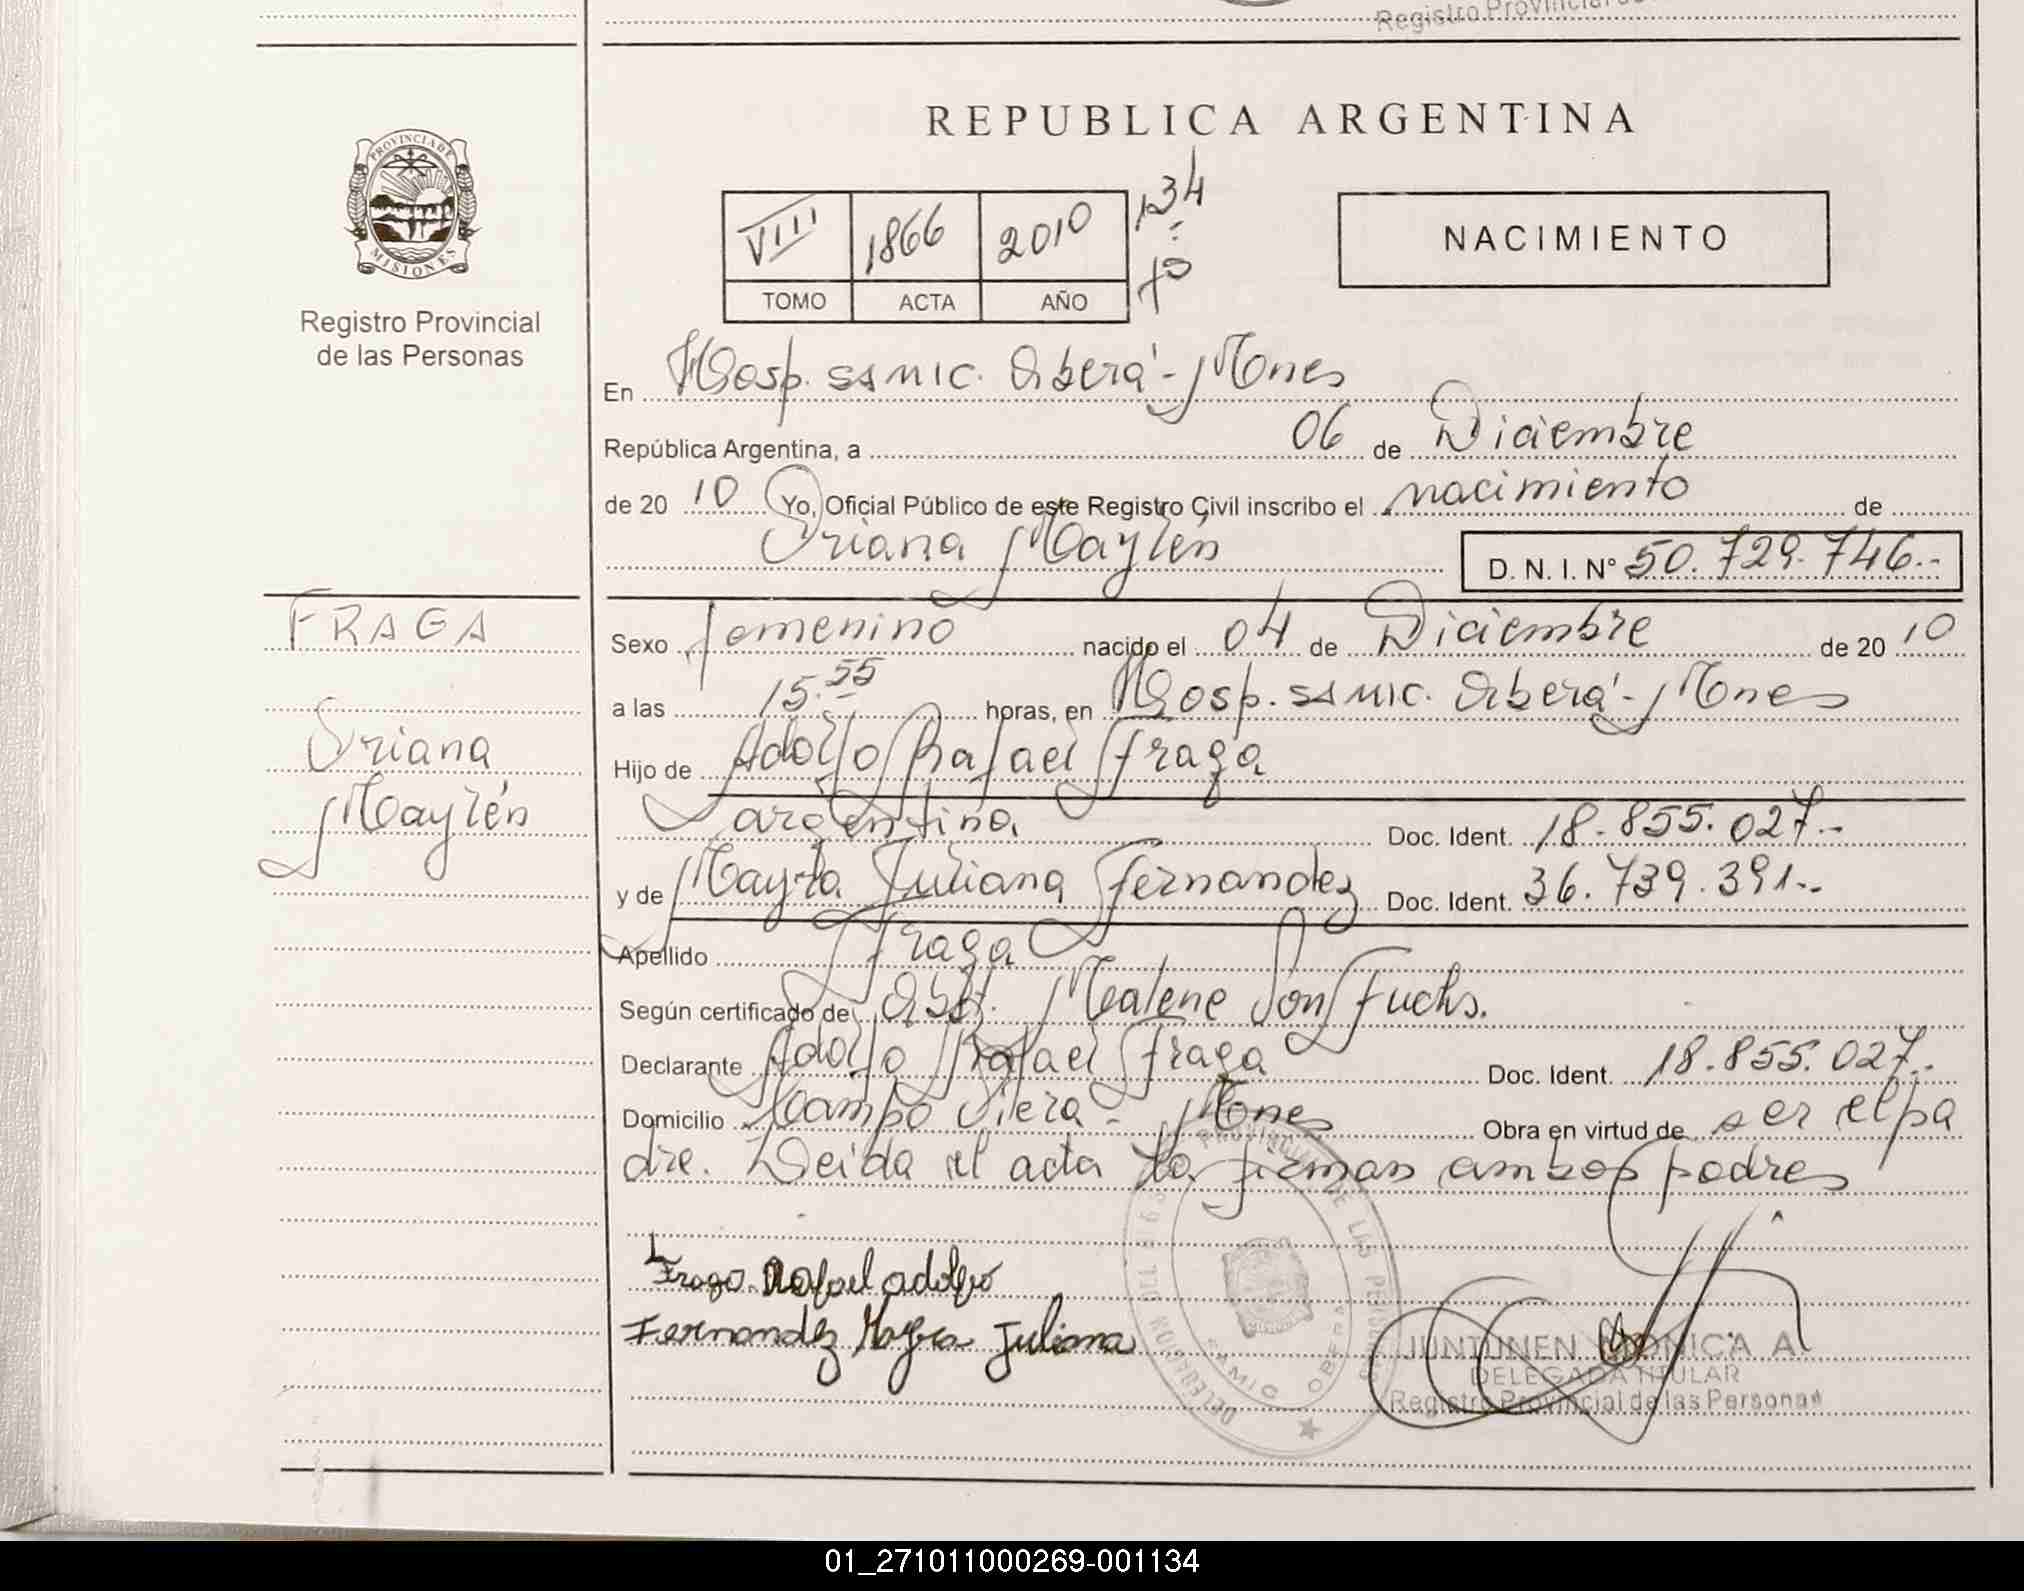 Registro Provincial
REPUBLICA ARGENTINA
PROVINCIA DE
MISIONES
Registro Provincial
de las Personas
VIII 1866 2010 134
TOMO ACTA AÑO
NACIMIENTO
En Hosp. SAMIC. Oberá - Mnes
República Argentina, a 06 de Diciembre
de 20 10 Yo, Oficial Público de este Registro Civil inscribo el nacimiento de
Oriana Maylén D. N. I. N° 50.729.746.-
FRAGA
Oriana
Maylén
Sexo femenino nacido el 04 de Diciembre de 20 10
a las 15.55 horas, en Hosp. SAMIC. Oberá - Mnes
Hijo de Adolfo Rafael Fraga
argentino. Doc. Ident. 18.855.027.-
y de Mayra Juliana Fernandez Doc. Ident. 36.739.391.-
Apellido Fraga
Según certificado de Obst. Malene Von Fuchs.
Declarante Adolfo Rafael Fraga Doc. Ident. 18.855.027.-
Domicilio Campo Viera - Mnes Obra en virtud de ser el pa
dre. Leída el acta la firman ambos padres
Fraga Rafael adolfo
Fernandez Mayra Juliana
JUNTUNEN MONICA A
DELEGADA TITULAR
Registro Provincial de las Personas
01_271011000269-001134